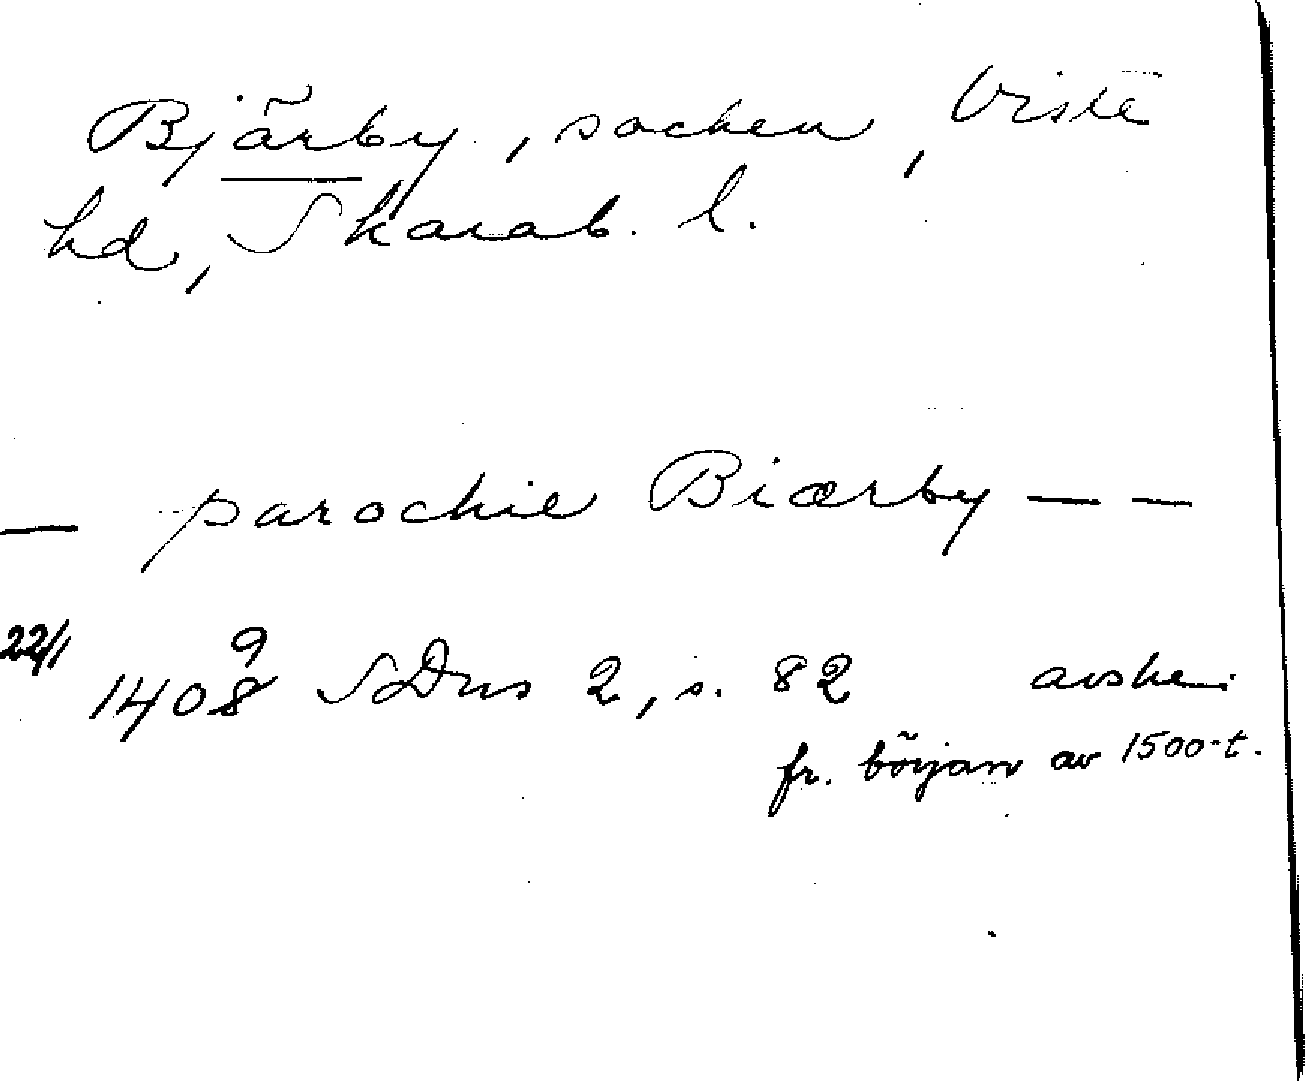 Bjärby, socken, Viste
hd, Skarab. l.
— parochie Biærby — —
22/1 1408 9 SDns 2, s. 82 avskr.
fr. början av 1500-t.